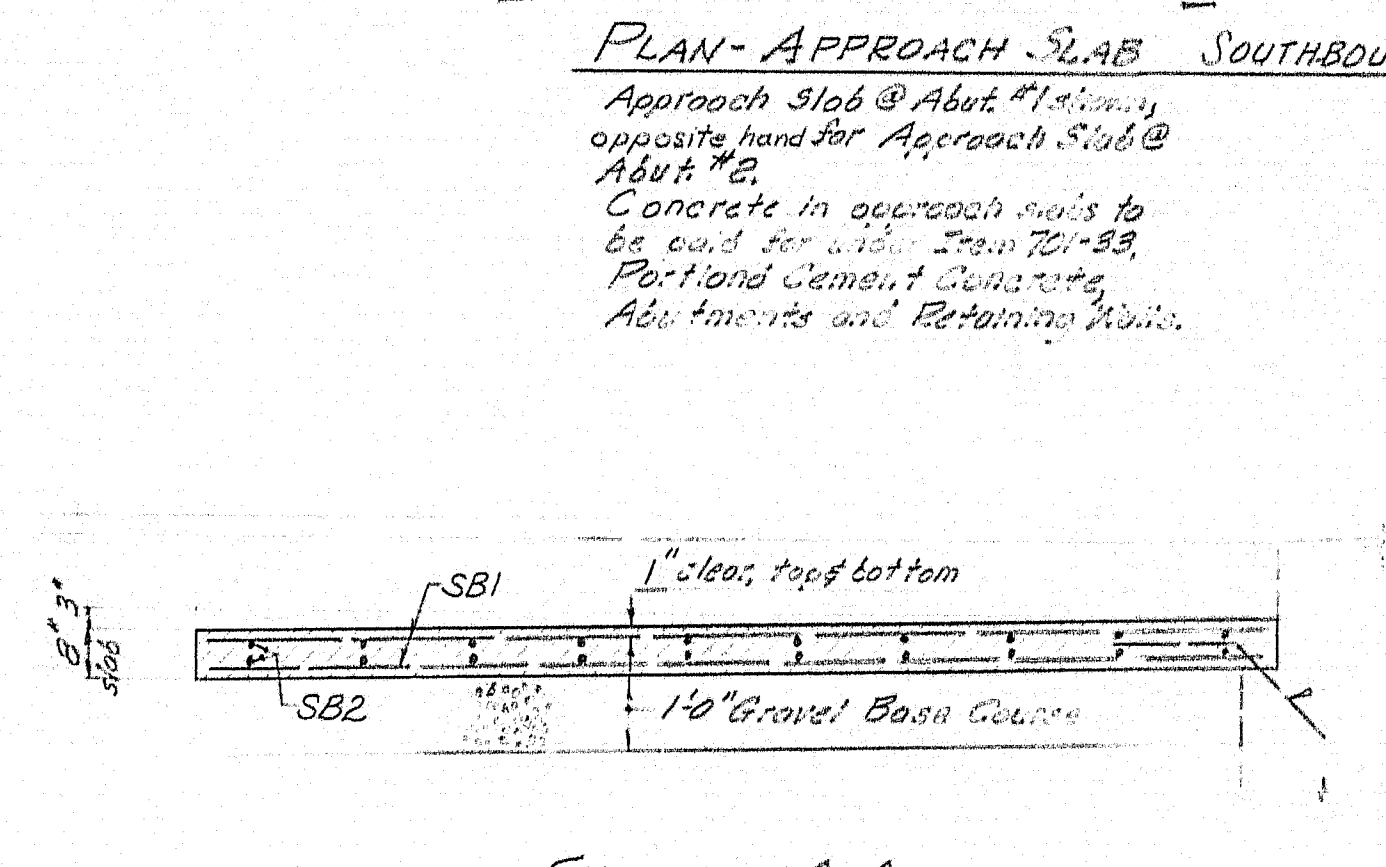 PLAN - APPROACH SLAB SOUTHBOU
Approach Slab @ Abut. #1 shown,
opposite hand for Approach Slab @
Abut. #2.
Concrete in approach slabs to
be paid for under Item 701-33,
Portland Cement Concrete,
Abutments and Retaining Walls.
1" clear, top & bottom
SB1
3"
8"
slab
SB2
1'-0" Gravel Base Course